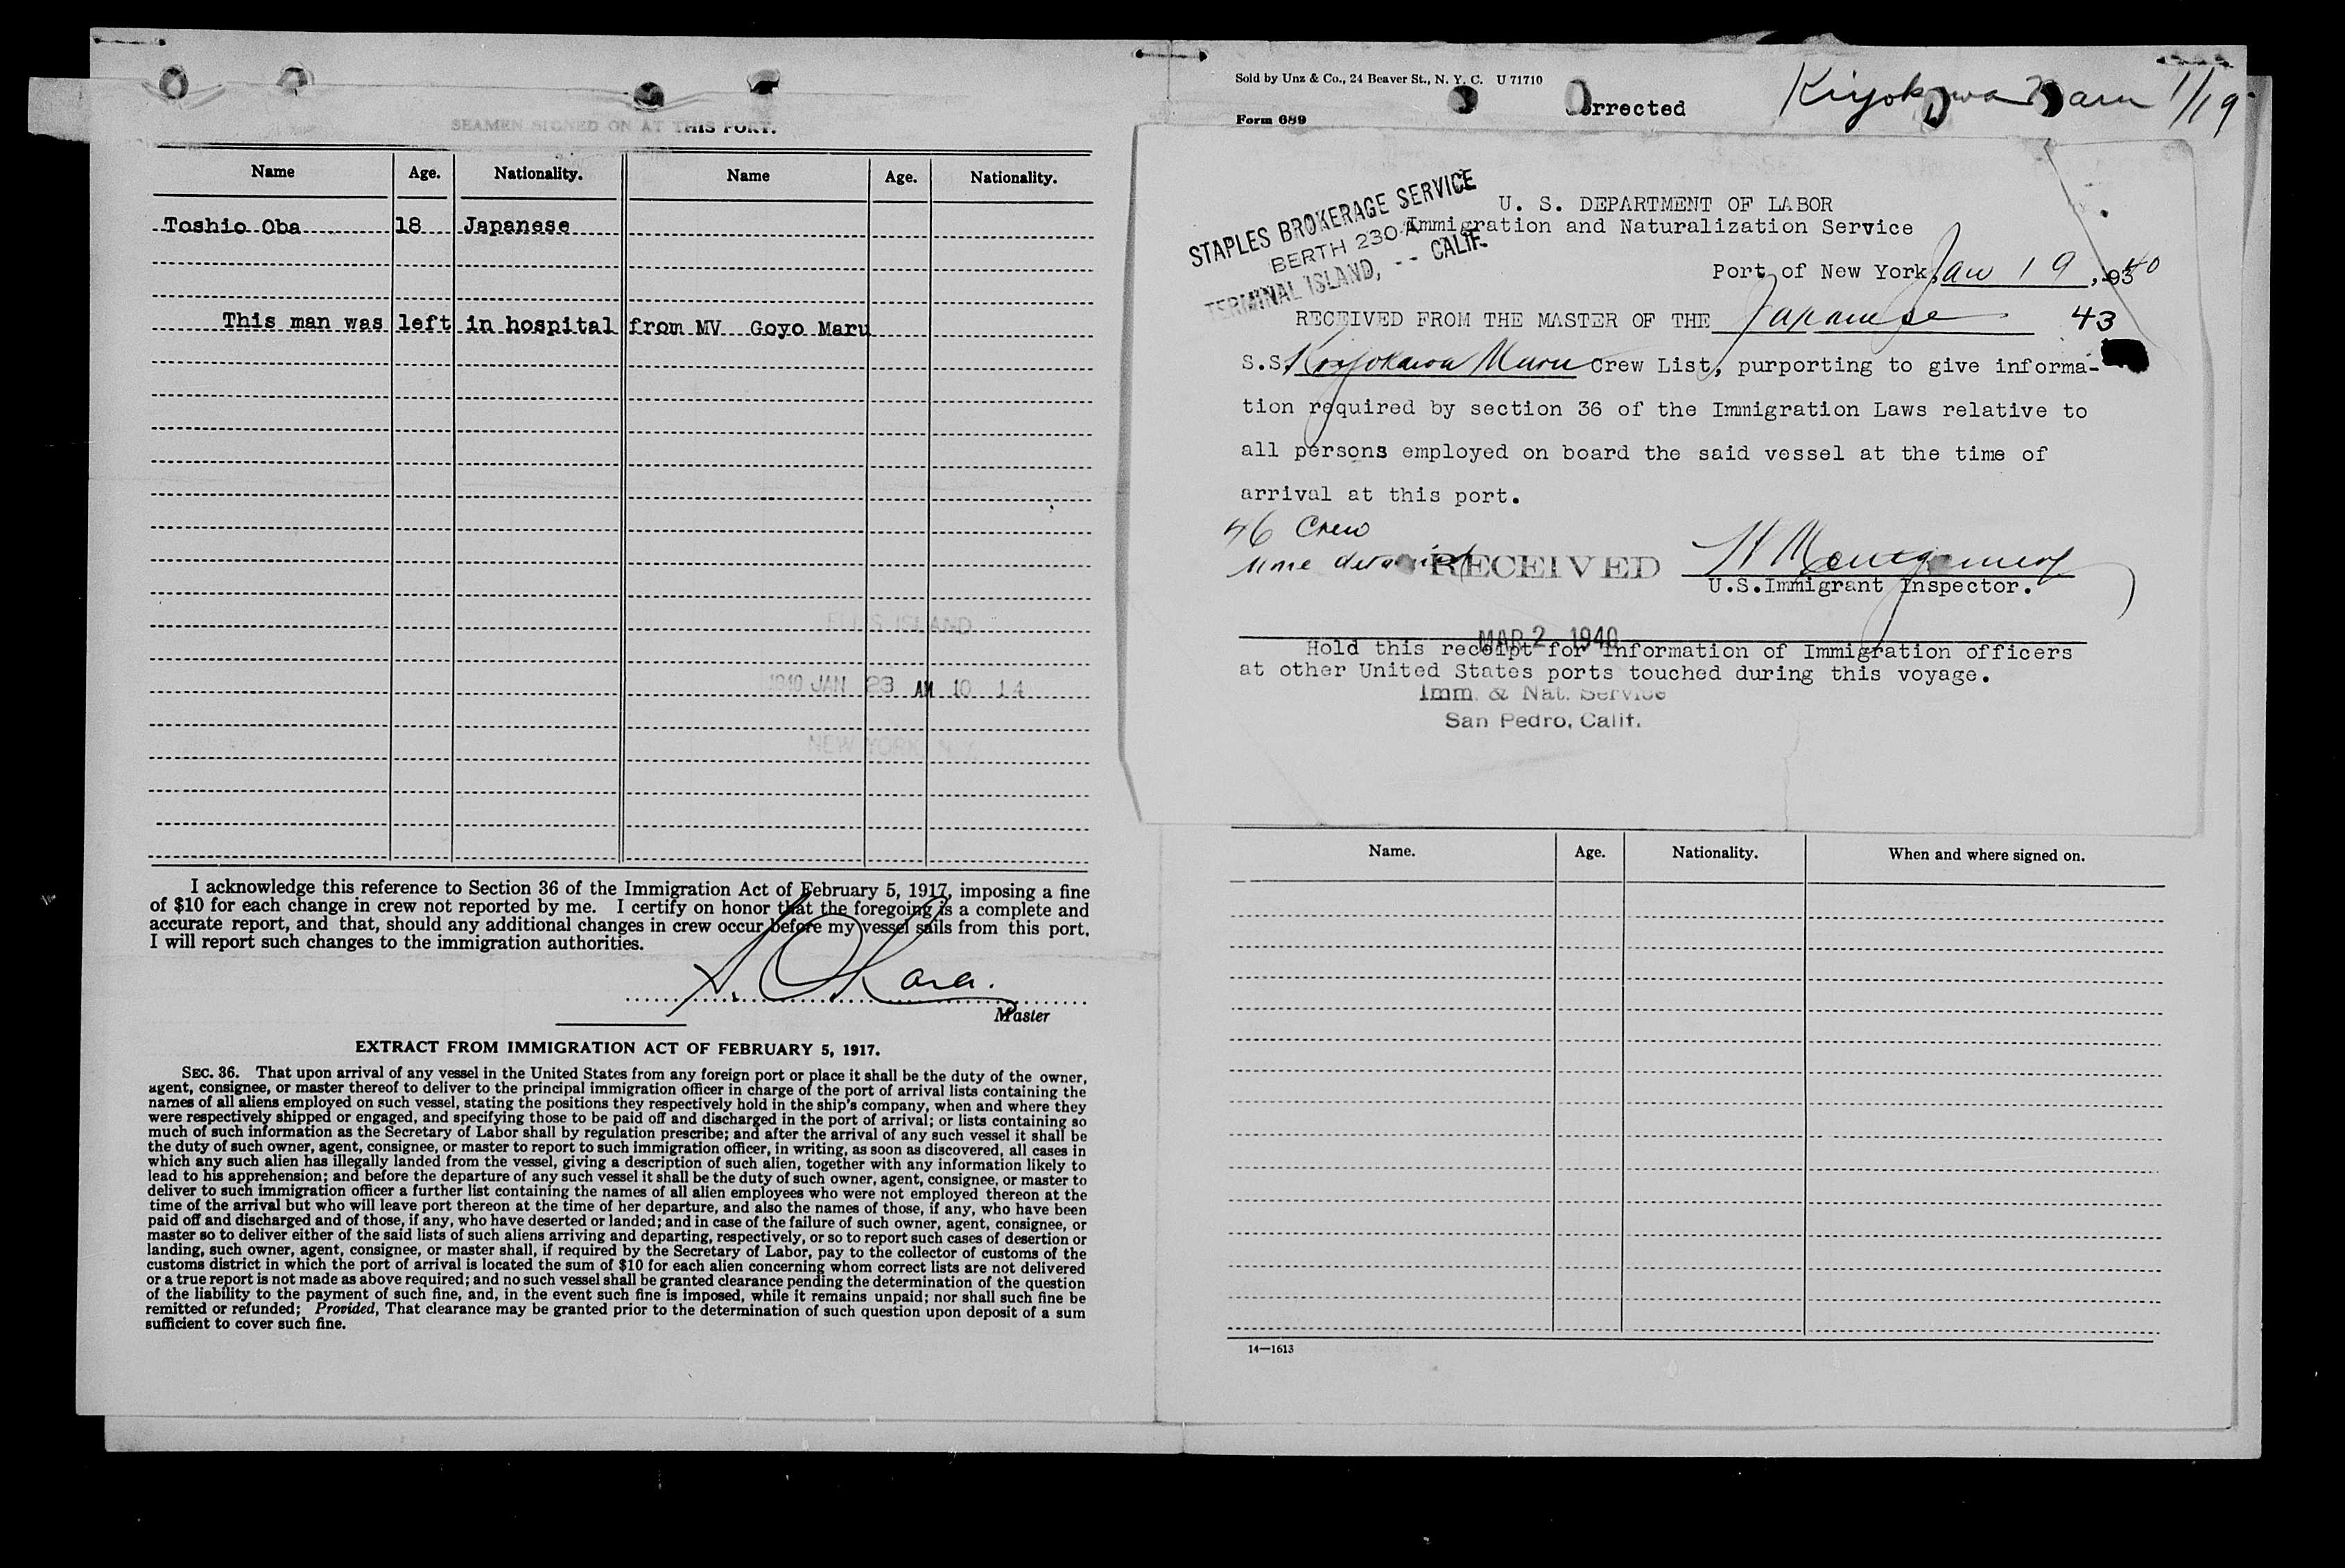 SEAMEN SIGNED ON AT THIS PORT.
Name Age. Nationality. Name Age. Nationality.
Toshio Oba 18 Japanese
This man was left in hospital from MV Goyo Maru
ELLIS ISLAND
1940 JAN 23 AM 10 14
NEW YORK N.Y.
I acknowledge this reference to Section 36 of the Immigration Act of February 5, 1917, imposing a fine
of $10 for each change in crew not reported by me. I certify on honor that the foregoing is a complete and
accurate report, and that, should any additional changes in crew occur before my vessel sails from this port,
I will report such changes to the immigration authorities.
Master
EXTRACT FROM IMMIGRATION ACT OF FEBRUARY 5, 1917.
SEC. 36. That upon arrival of any vessel in the United States from any foreign port or place it shall be the duty of the owner,
agent, consignee, or master thereof to deliver to the principal immigration officer in charge of the port of arrival lists containing the
names of all aliens employed on such vessel, stating the positions they respectively hold in the ship's company, when and where they
were respectively shipped or engaged, and specifying those to be paid off and discharged in the port of arrival; or lists containing so
much of such information as the Secretary of Labor shall by regulation prescribe; and after the arrival of any such vessel it shall be
the duty of such owner, agent, consignee, or master to report to such immigration officer, in writing, as soon as discovered, all cases in
which any such alien has illegally landed from the vessel, giving a description of such alien, together with any information likely to
lead to his apprehension; and before the departure of any such vessel it shall be the duty of such owner, agent, consignee, or master to
deliver to such immigration officer a further list containing the names of all alien employees who were not employed thereon at the
time of the arrival but who will leave port thereon at the time of her departure, and also the names of those, if any, who have been
paid off and discharged and of those, if any, who have deserted or landed; and in case of the failure of such owner, agent, consignee, or
master so to deliver either of the said lists of such aliens arriving and departing, respectively, or so to report such cases of desertion or
landing, such owner, agent, consignee, or master shall, if required by the Secretary of Labor, pay to the collector of customs of the
customs district in which the port of arrival is located the sum of $10 for each alien concerning whom correct lists are not delivered
or a true report is not made as above required; and no such vessel shall be granted clearance pending the determination of the question
of the liability to the payment of such fine, and, in the event such fine is imposed, while it remains unpaid; nor shall such fine be
remitted or refunded; Provided, That clearance may be granted prior to the determination of such question upon deposit of a sum
sufficient to cover such fine.
Sold by Unz & Co., 24 Beaver St., N. Y. C. U 71710
Corrected
Kiyokawa Maru 1/19
Form 689
STAPLES BROKERAGE SERVICE
BERTH 230-A
TERMINAL ISLAND, -- CALIF.
U. S. DEPARTMENT OF LABOR
Immigration and Naturalization Service
Port of New York, Jan 19, 1940
RECEIVED FROM THE MASTER OF THE Japanese 43
S.S. Kiyokawa Maru Crew List, purporting to give informa-
tion required by section 36 of the Immigration Laws relative to
all persons employed on board the said vessel at the time of
arrival at this port.
46 Crew
none detained
RECEIVED
H Montgomery
U.S.Immigrant Inspector.
MAR 2 1940
Hold this receipt for information of Immigration officers
at other United States ports touched during this voyage.
Imm. & Nat. Service
San Pedro, Calif.
Name. Age. Nationality. When and where signed on.
14—1613